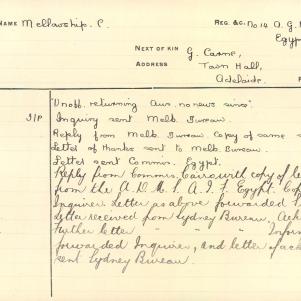 NAME Mellowship. C.
REG. &C. No 14 A. G. H
Egyp
NEXT OF KIN
ADDRESS
G. Carne,
Town Hall,
Adelaide.
3/P
"Unoff. returning Aus. no news since"
Inquiry sent Melb. Bureau.
Reply from Melb. Bureau. Copy of same
Letter of thanks sent to Melb. Bureau.
Letter sent Commis. Egypt.
Reply from Commis. Cairo with copy of le
from the A. D. M. S. A. I. F. Egypt. Cop
Inquirer. Letter as above forwarded
Letter received from Sydney Bureau. Ack
Further letter " " " Infor
forwarded Inquirer, and letter of ack
sent Sydney Bureau.